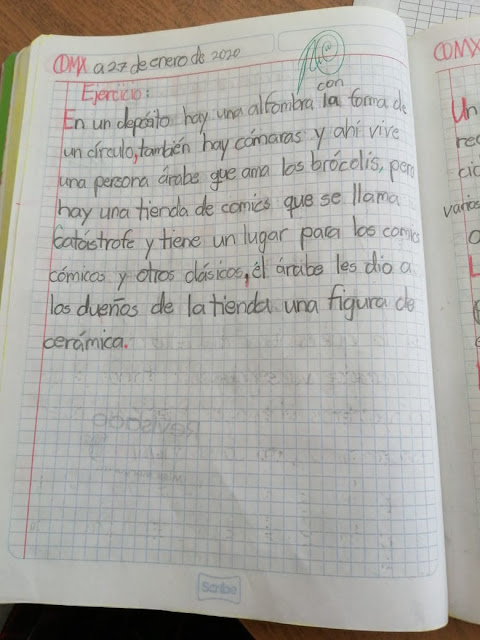 CDMX a 27 de enero de 2020
Ejercicio:
con
En un depósito hay una alfombra la forma de
un círculo, también hay cámaras y ahí vive
una persona árabe que ama los brócolis, pero
hay una tienda de comics que se llama
catástrofe y tiene un lugar para los comics
cómicos y otros clásicos, él árabe les dio a
los dueños de la tienda una figura de
cerámica.
Scribe
CDMX
Un
varios